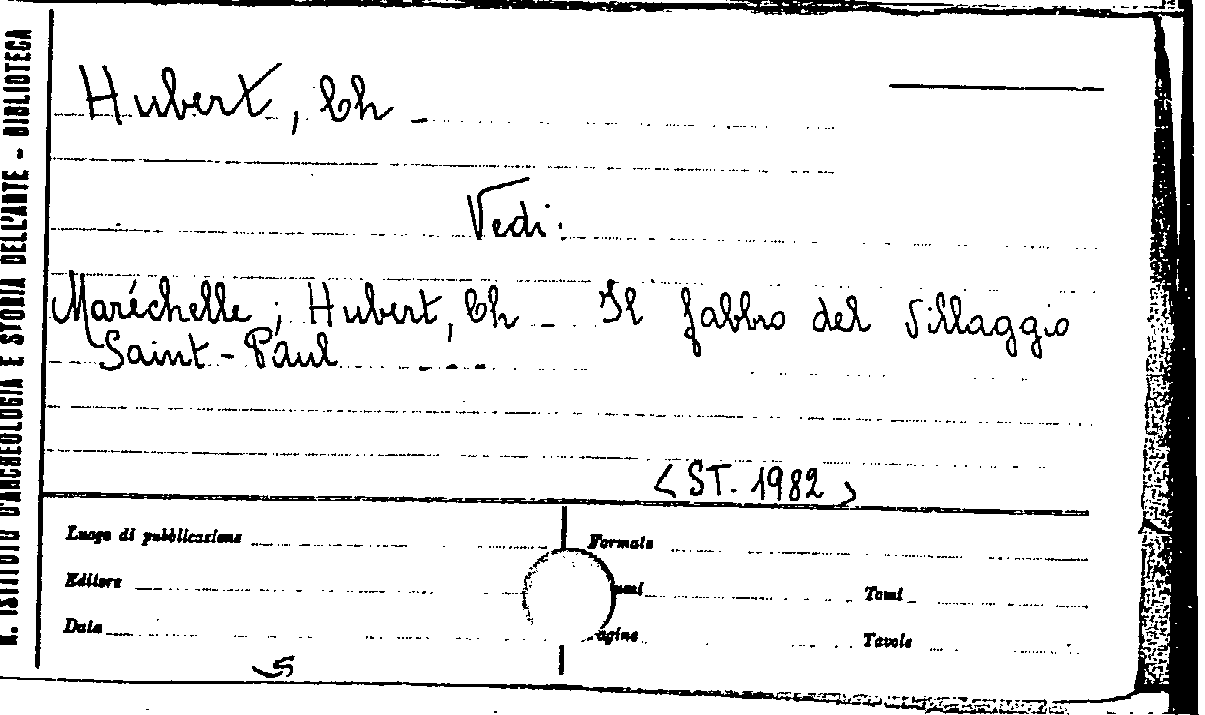 R. ISTITUTO D'ARCHEOLOGIA E STORIA DELL'ARTE - BIBLIOTECA
Hubert, Ch -
Vedi:
Maréchelle; Hubert, Ch - Il fabbro del villaggio
Saint-Paul ---
<ST. 1982>
Luogo di pubblicazione Formato
Editore umi Tomi
Data agine Tavole